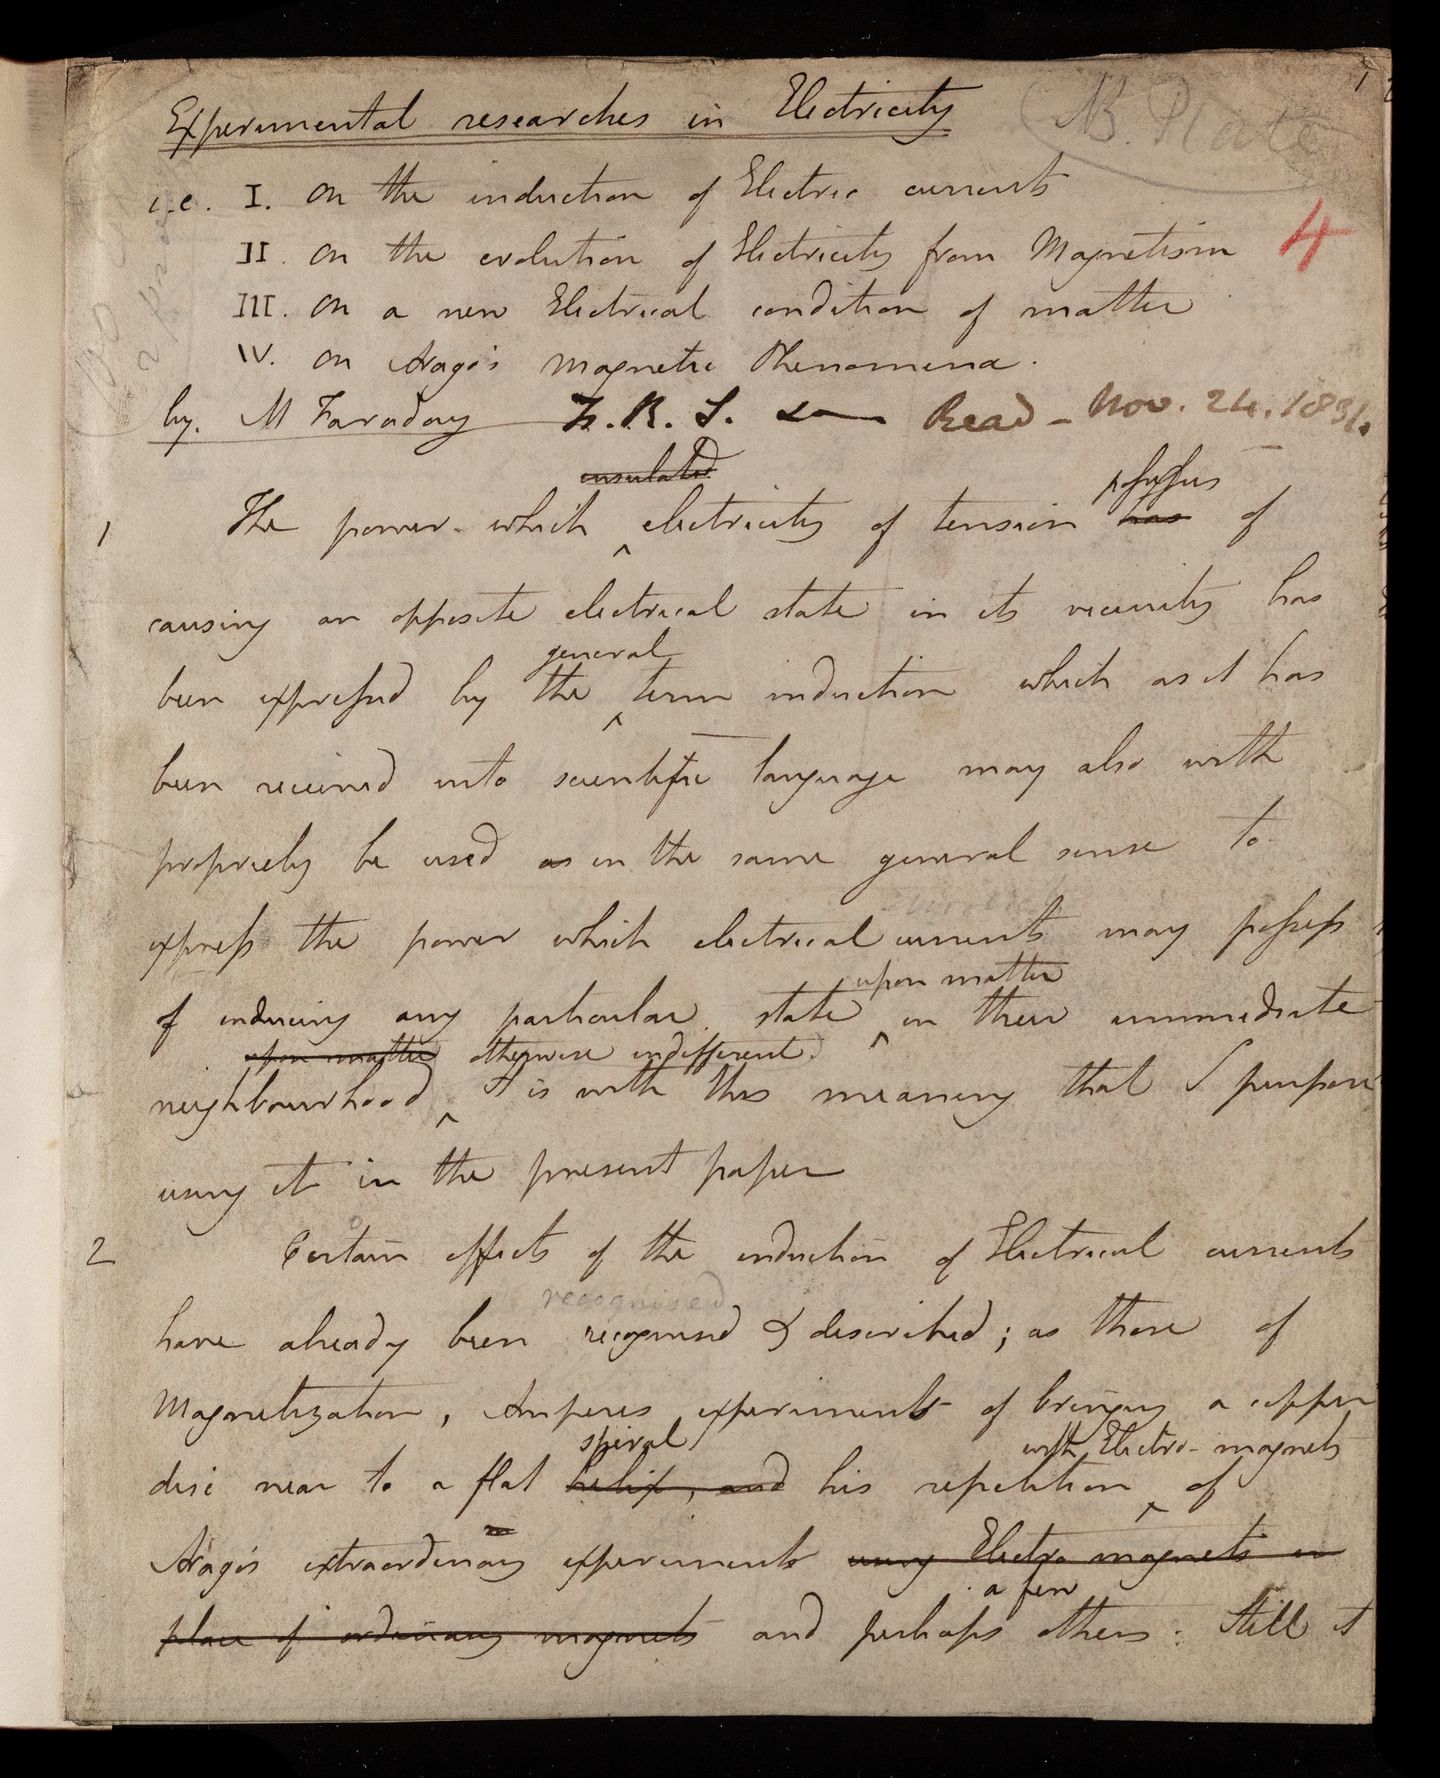 1
NB. Plate
Experimental researches in Electricity
i.e. I. On the induction of Electric currents
II. On the evolution of Electricity from Magnetism
4
III. On a new Electrical condition of matter
IV. On Arago's Magnetic Phenomena.
by. M Faraday F.R.S. Read - Nov. 24. 1831.
insulated possess
1 The power which ‸ electricity of tension has of
causing an opposite electrical state in its vicinity has
general
been expressed by the ‸ term induction which as it has
been received into scientific language may also with
propriety be used as in the same general sense to
express the power which electrical currents may possess
upon matter
of inducing any particular state ‸ in their immediate
upon matter otherwise indifferent.
neighbourhood ‸ It is with this meaning that I purpose
using it in the present paper
2 Certain effects of the induction of Electrical currents
recognised
have already been recognised & described; as those of
Magnetization, Amperes experiments of bringing a copper
spiral with Electro-magnets
disc near to a flat helix, and his repetition ‸ of
Arago's extraordinary experiments using Electro magnets in
a few
place of ordinary magnets and perhaps others. Still it